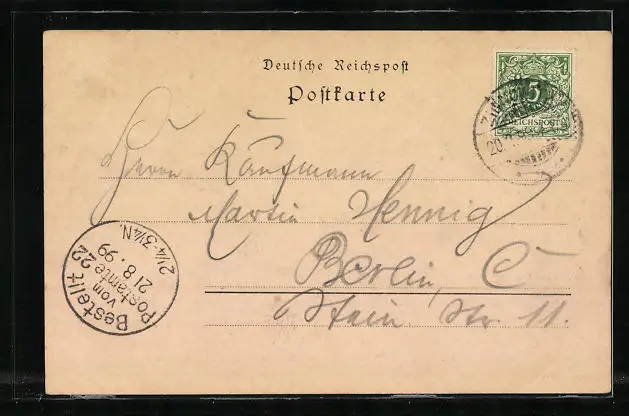 Deutsche Reichspost
Postkarte
5
REICHSPOST
20.
Herrn Kaufmann
Martin Hennig
Berlin, C
Stein. Str. 11.
Bestellt
vom
Postamte 22
21 8. 99
2¼-3¼N.